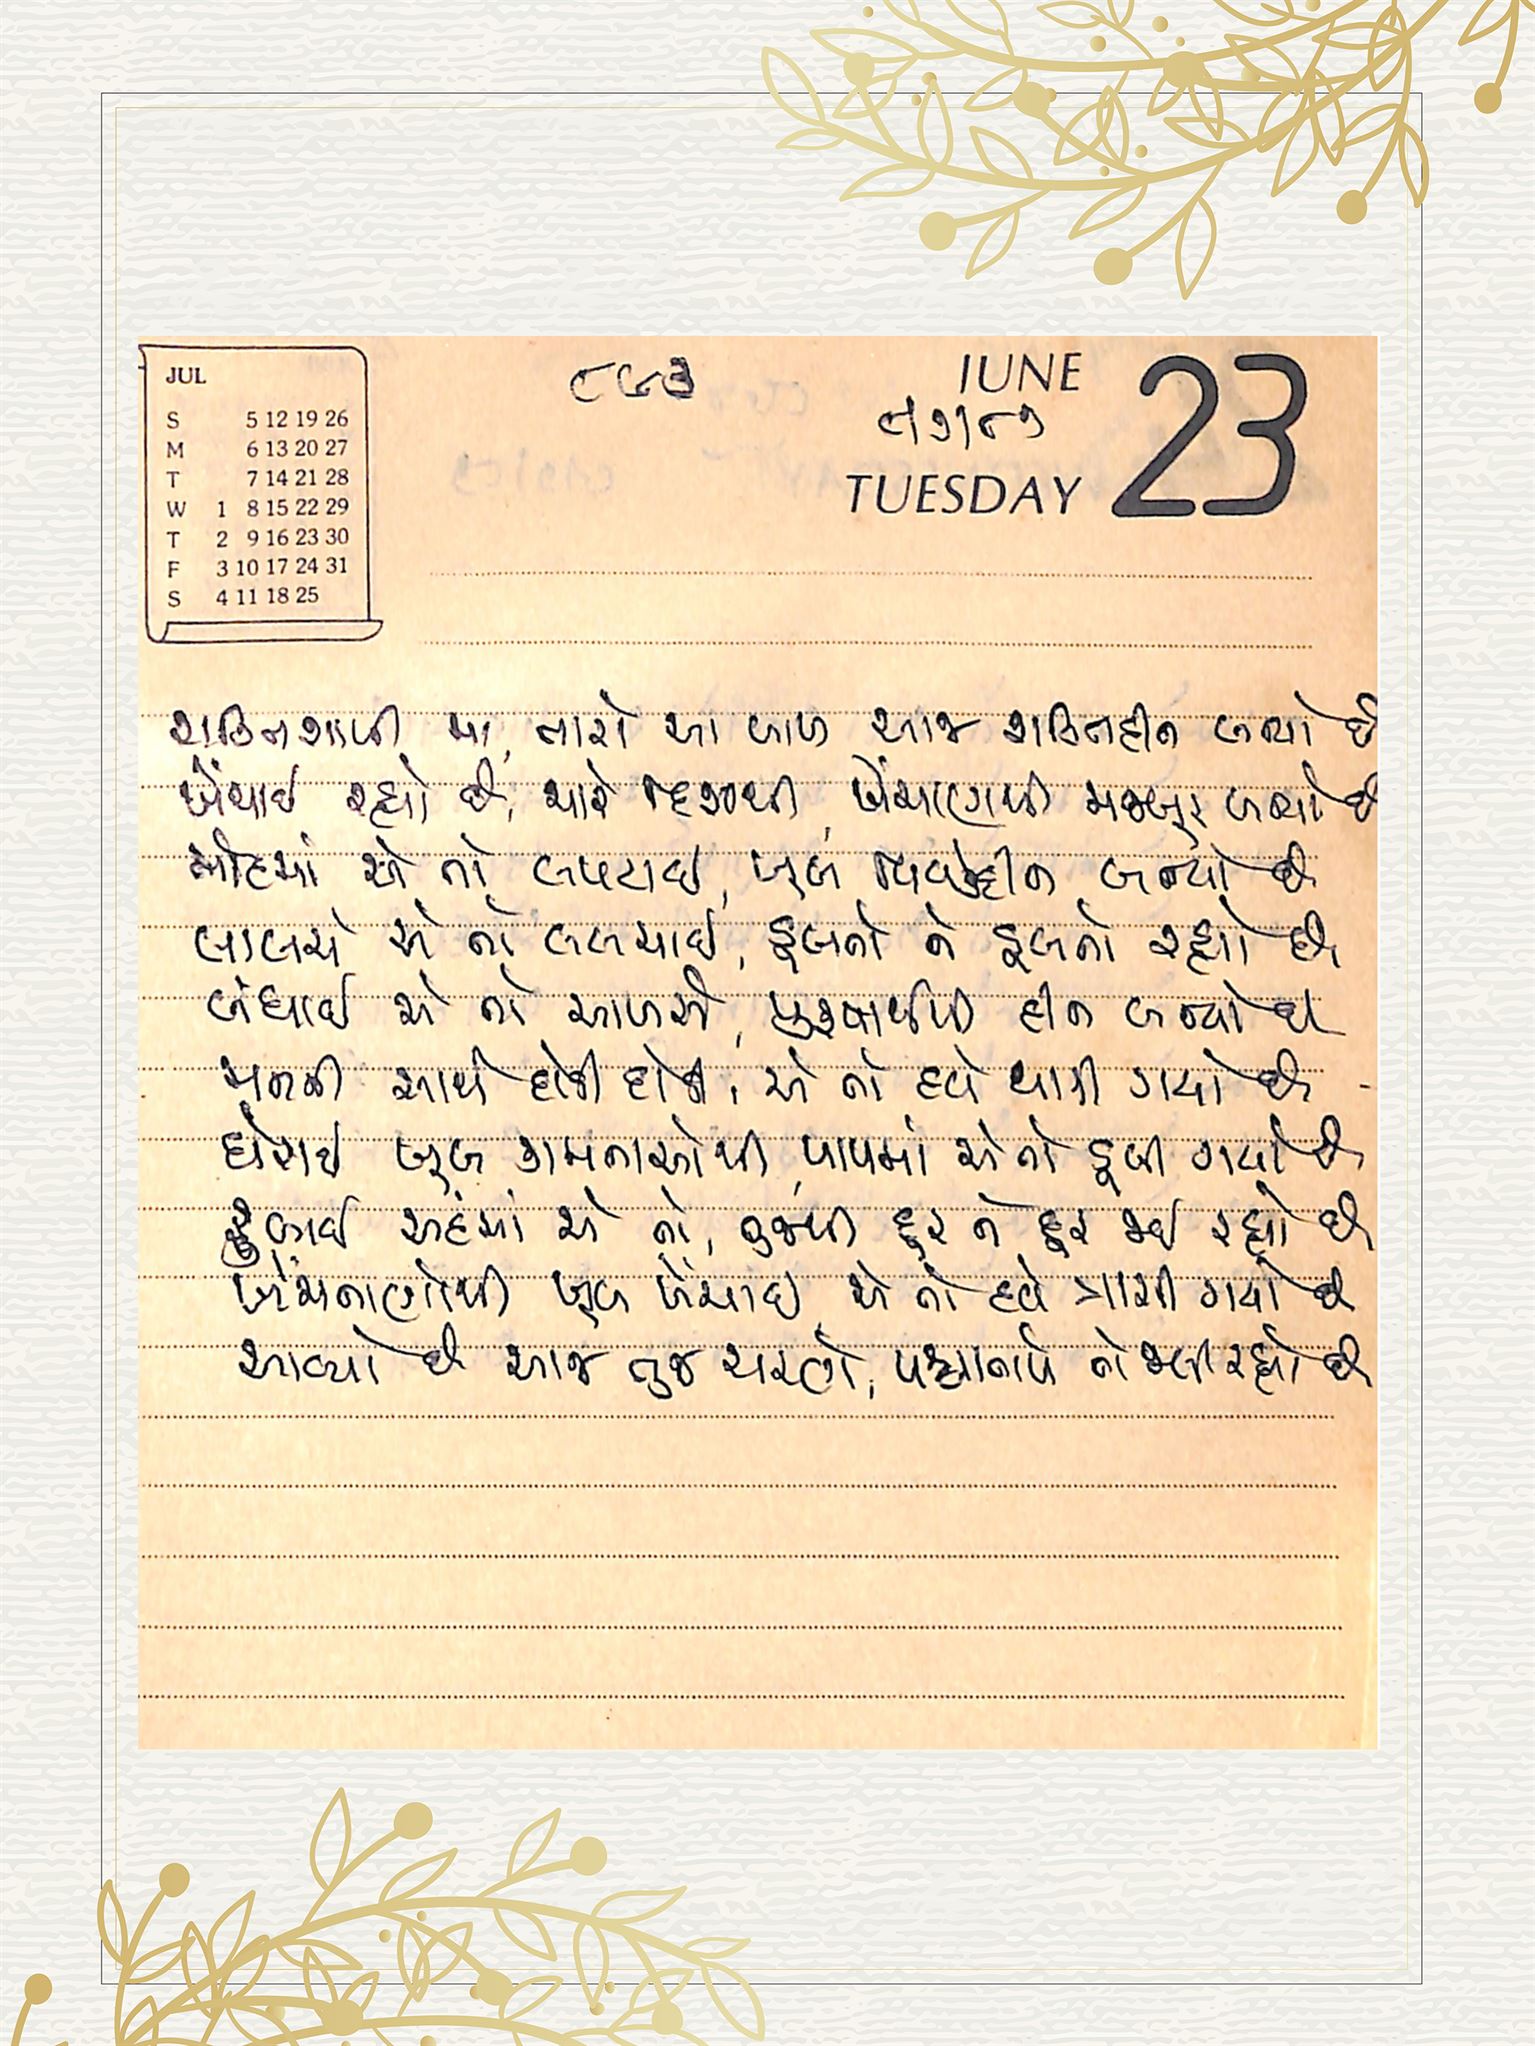 JUL
S 5 12 19 26
M 6 13 20 27
T 7 14 21 28
W 1 8 15 22 29
T 2 9 16 23 30
F 3 10 17 24 31
S 4 11 18 25
JUNE
23
TUESDAY
શક્તિશાળી મા, તારો આ બાળ આજ શક્તિહીન બન્યો છે
ખેંચાઈ રહ્યો છે, ચારે દિશાથી, ખેંચાણથી મજબૂર બન્યો છે
મોહમાં એ તો લપટાઈ, ખૂબ વિવેકહીન બન્યો છે
લાલચે એ તો લલચાઈ, ડૂબતો ને ડૂબતો રહ્યો છે
બંધાઈ એ તો આળસે, પુરુષાર્થથી હીન બન્યો છે
મનની સાથે દોડી દોડી, એ તો હવે થાકી ગયો છે
ઘેરાઈ ખૂબ કામનાઓથી, પાપમાં એ તો ડૂબી ગયો છે
અહંમાં એ તો, તુજથી દૂર ને દૂર થઈ રહ્યો છે
ખેંચતાણોથી ખૂબ ખેંચાઈ, એ તો હવે ત્રાસી ગયો છે
આવ્યો છે આજ તુજ ચરણે, પશ્ચાતાપે તો જલી રહ્યો છે